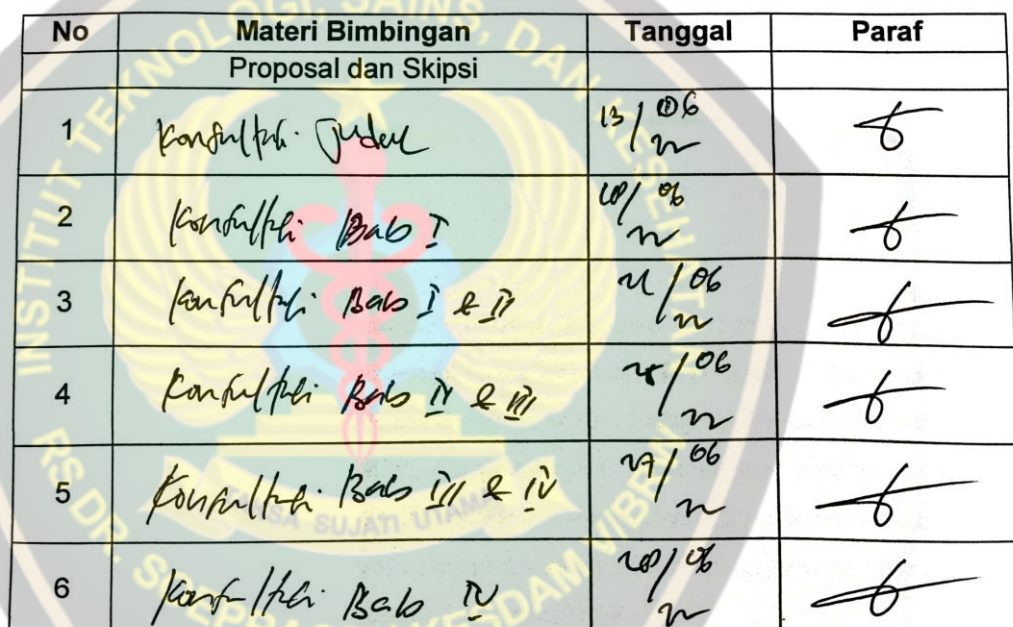 No Materi Bimbingan Tanggal Paraf
Proposal dan Skipsi
1 Konsultasi Judul 13/06 22
2 Konsultasi Bab I 06 22
3 Konsultasi Bab I & II 06 22
4 Konsultasi Bab & III 06 22
5 Konsultasi Bab III & IV 27/06 22
6 Konsultasi Bab IV 06 22
INSTITUT TEKNOLOGI, SAINS, DAN KESEHATAN
RS DR. SOEPRAOEN KESDAM V/BRW
SUJATI UTAMA